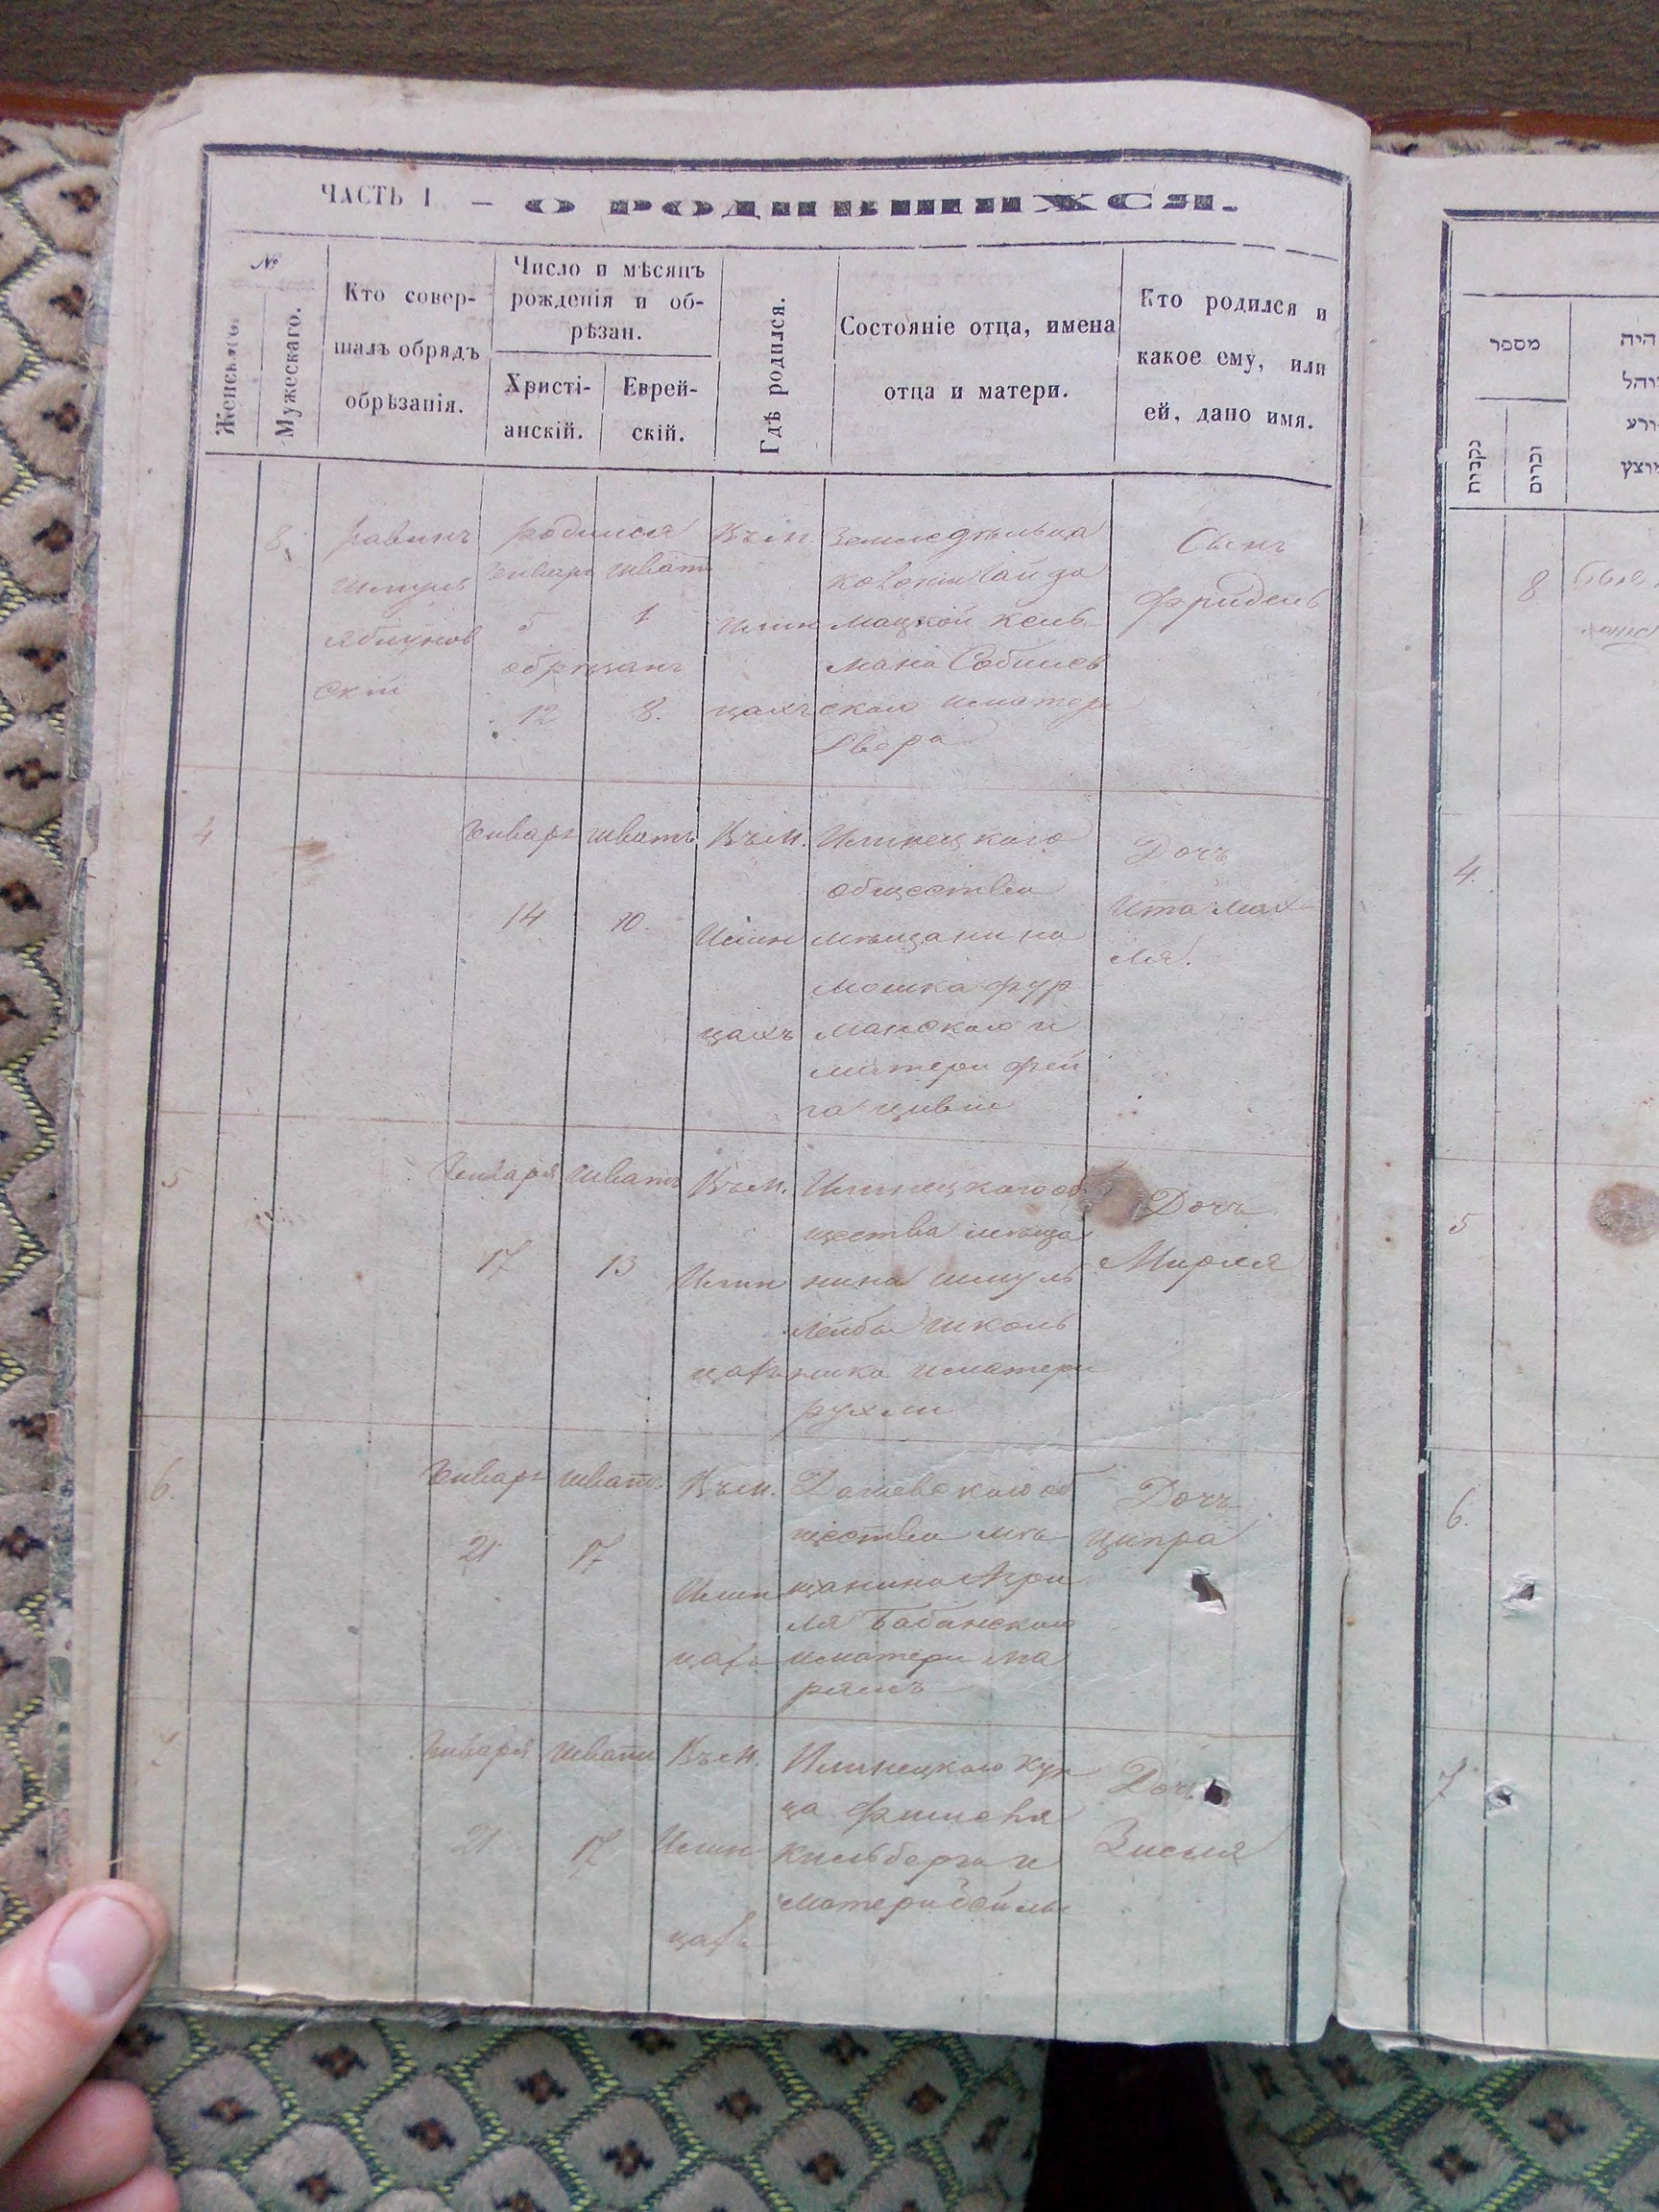 ЧАСТЬ I – О РОДИВШИХСЯ.
№
Женскаго.
Мужескаго.
Кто совер-
шалъ обрядъ
обрѣзанія.
Число и мѣсяцъ
рожденія и об-
рѣзан.
Христі-
анскій.
Еврей-
скій.
Гдѣ родился.
Состояніе отца, имена
отца и матери.
Кто родился и
какое ему, или
ей, дано имя.
8.
Равинъ
Шмуль
Яблунов
скій
родился
Январь Шватъ
5 1
обрѣзанъ
12 8.
Въ м
Илин
цахъ
Земледѣльца
колоніи
мацкой Кель
мана
скаго и матери
Двера
Сынъ
Фридель
4
Январь Шватъ
14 10.
Въ м.
Илин
цахъ
Илинецкаго
общества
мѣщанина
Мошка Фур
манскаго и
матери Фей
га Цивіи
Дочь
Ита Мах
ля.
5
Января Шватъ
17 13
Въ м.
Илин
цахъ
Илинецкаго об
щества мѣща
нина Шмуль
Лейба Школь
ника и матери
Рухли
Дочь
Мирля
6.
Январь Шватъ
21 17
Въ м.
Илин
цахъ
Дашевскаго об
щества мѣ
щанина Азри
ля Бабанскаго
и матери Ма
ріямъ
Дочь
Ципра
7
Января Швата
21 17
Въ м.
Илин
цахъ
Илинецкаго куп
ца Фишеля
Кильберга и
матери Бейлы
Дочь
Зисля
מספר
נקבות
זכרים
היה
8
4.
5
6.
7